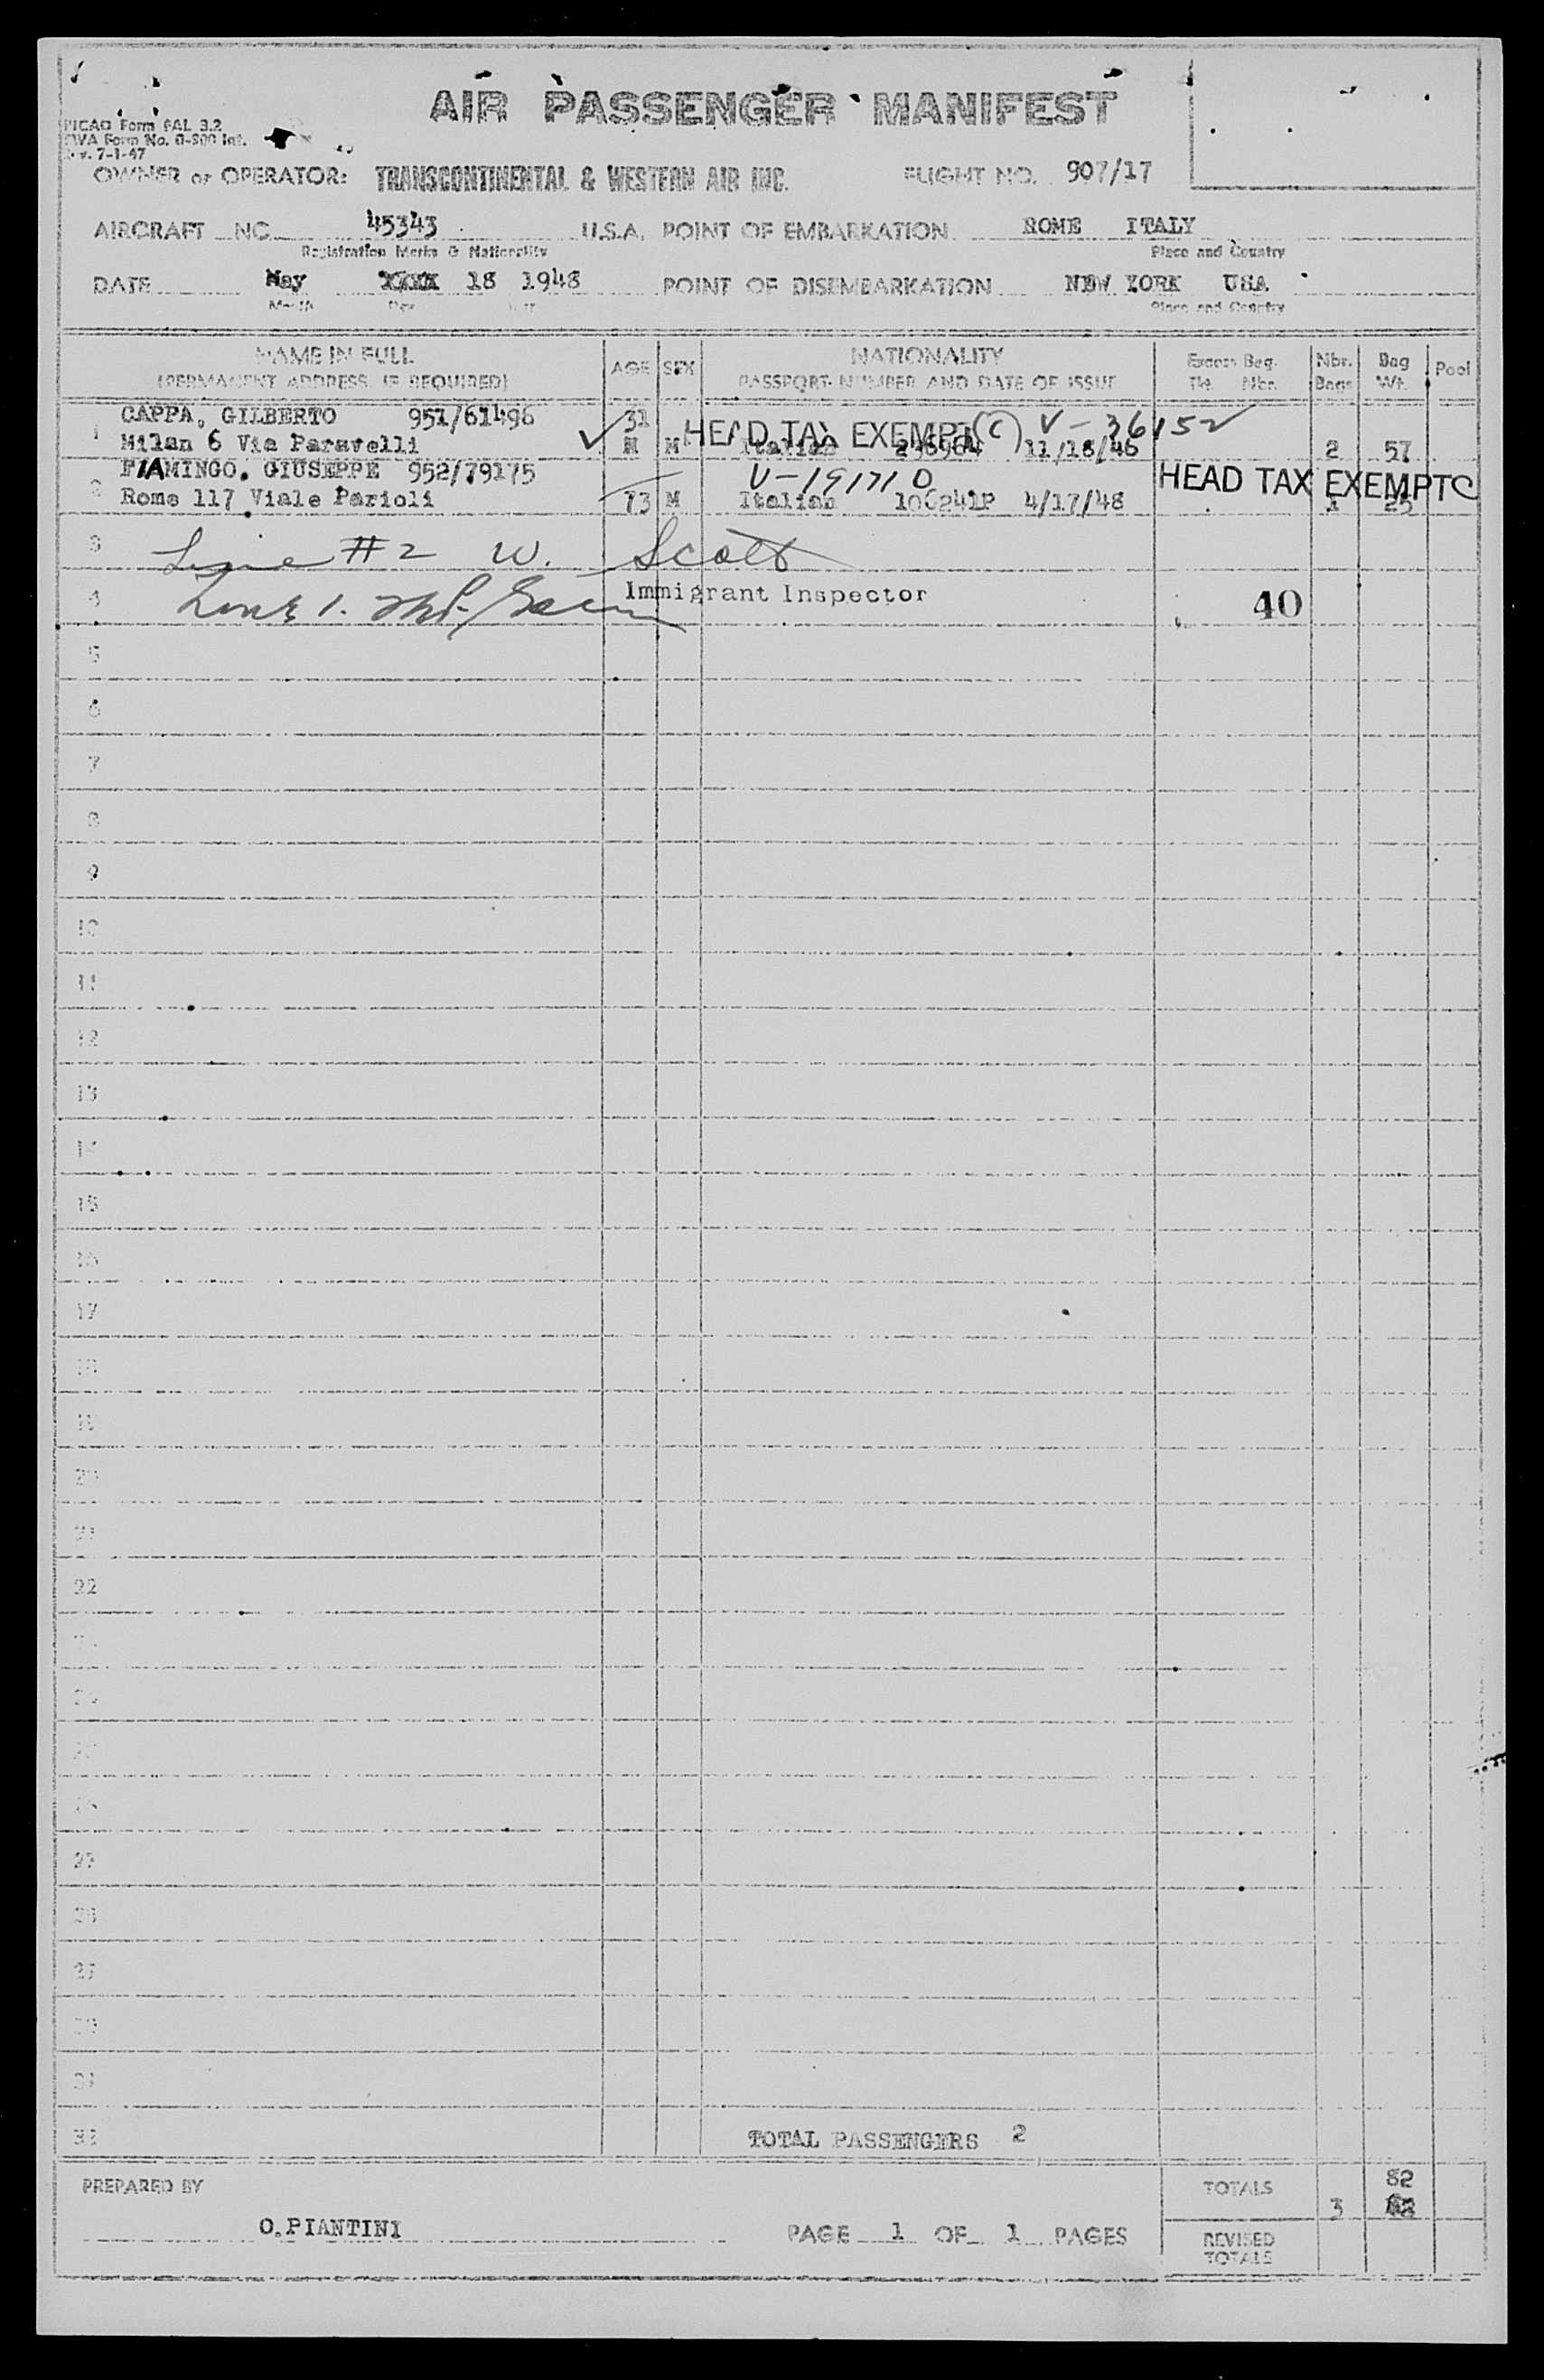 AIR PASSENGER MANIFEST
PICAO Form FAL 3.2
TWA Form No. O-900 Int.
Rev. 7-1-47
OWNER or OPERATOR: TRANSCONTINENTAL & WESTERN AIR INC. FLIGHT NO. 907/17
AIRCRAFT NO. 45343 U.S.A. POINT OF EMBARKATION ROME ITALY
Registration Marks & Nationality Place and Country
DATE May 18 1948 POINT OF DISEMBARKATION NEW YORK USA
Month Day Place and Country
NAME IN FULL AGE SEX NATIONALITY Excess Bag. Nbr. Bag Pool
(PERMANENT ADDRESS, IF REQUIRED) PASSPORT NUMBER AND DATE OF ISSUE Tkt. Nbr. Bags Wt.
CAPPA, GILBERTO 951/61496 31 HEAD TAX EXEMPT (C) V-36152
1 Milan 6 Via Paravelli M M Italian 11/18/46 2 57
FIAMINGO, GIUSEPPE 952/79175 V-191710 HEAD TAX EXEMPT C
2 Rome 117 Viale Parioli 73 M Italian 106241P 4/17/48 1 25
3 Line #2 W. Scott
4 Line 1. Immigrant Inspector 40
5
6
7
8
9
10
11
12
13
14
15
16
17
18
19
20
21
22
27
28
TOTAL PASSENGERS 2
32
PREPARED BY TOTALS 82
O.PIANTINI 3
PAGE 1 OF 1 PAGES REVISED
TOTALS